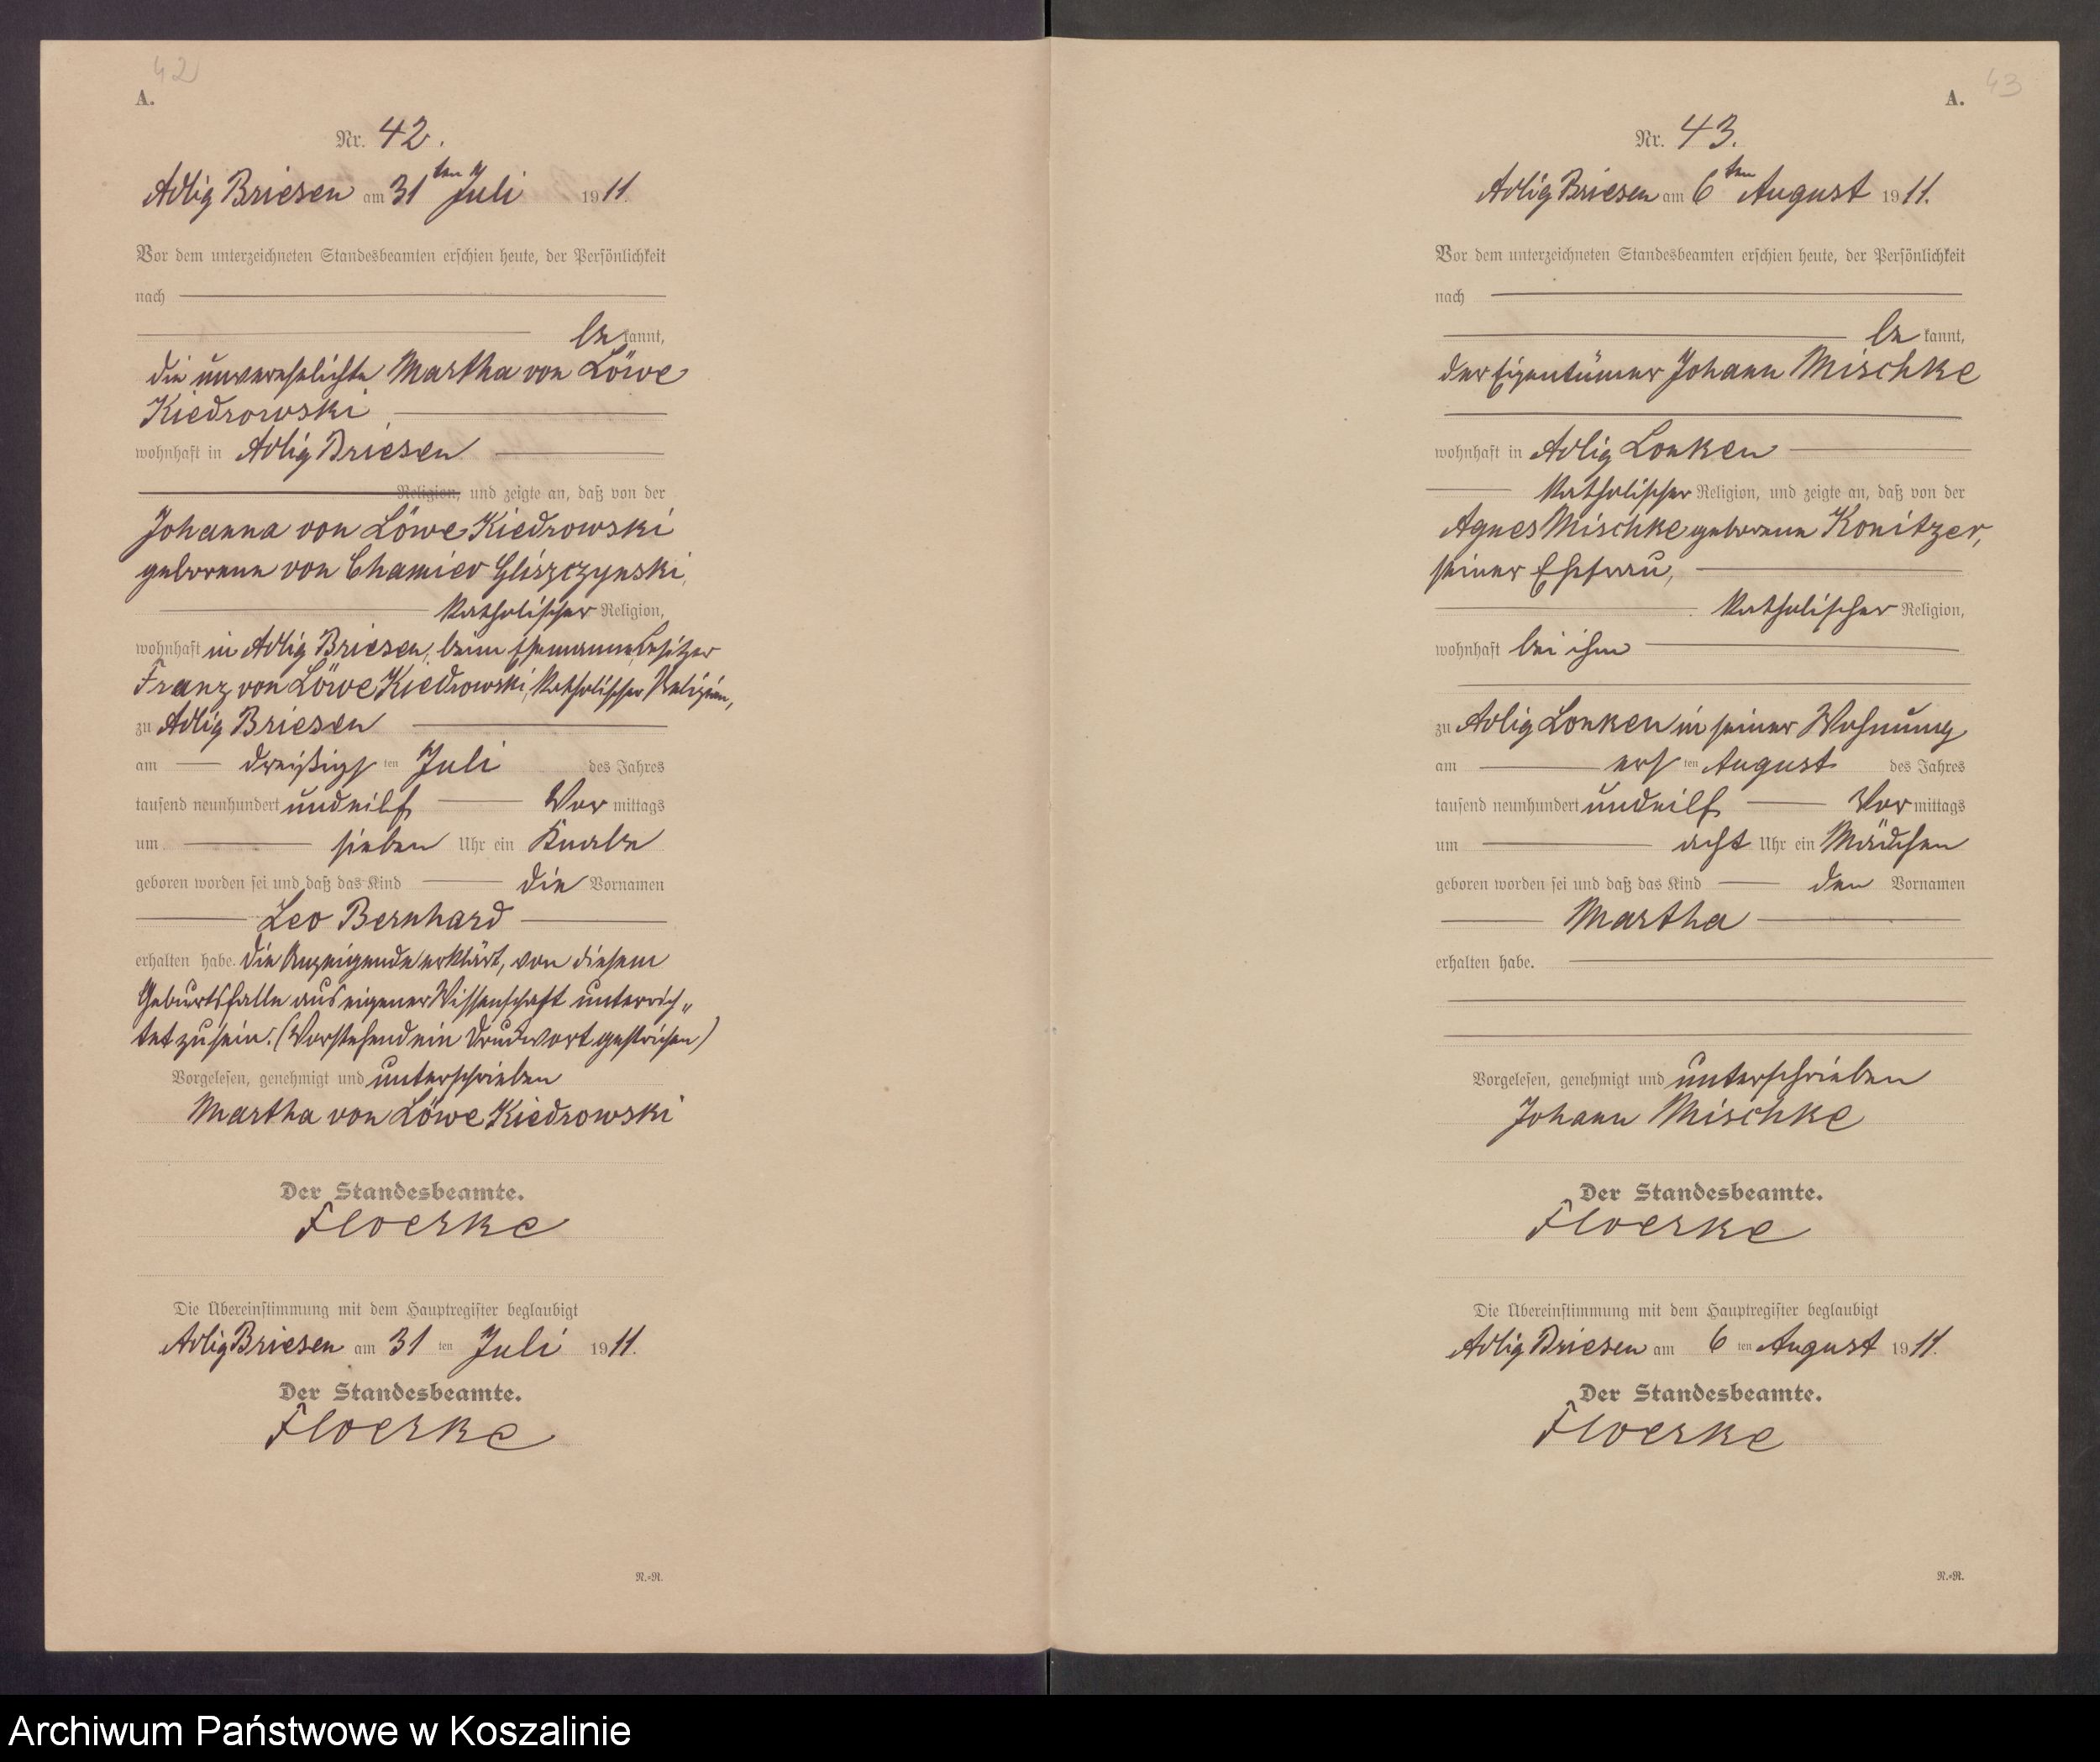 42
A.
Nr. 42.
Adlig Briesen am 31ten Juli 1911.
Vor dem unterzeichneten Standesbeamten erschien heute, der Persönlichkeit
nach
bekannt,
die unverehelichte Martha von Löwe
Kiedrowski,
wohnhaft in Adlig Briesen
Religion, und zeigte an, daß von der
Johanna von Löwe Kiedrowski
geborene von Chamier Gliszczynski,
katholischer Religion,
wohnhaft in Adlig Briesen, beim Ehemanne Besitzer
Franz von Löwe Kiedrowski, katholischer Religion,
zu Adlig Briesen
am dreißigsten Juli des Jahres
tausend neunhundert undeilf Vormittags
um sieben Uhr ein Knabe
geboren worden sei und daß das Kind die Vornamen
Leo Bernhard
erhalten habe. Die Anzeigende erklärt, von diesem
Geburtsfalle aus eigener Wissenschaft unterrich„
tet zu sein. (Vorstehend ein Druckwort gestrichen)
Vorgelesen, genehmigt und unterschrieben
Martha von Löwe Kiedrowski
Der Standesbeamte.
Floerke
Die Übereinstimmung mit dem Hauptregister beglaubigt
Adlig Briesen am 31ten Juli 1911.
Der Standesbeamte.
Floerke
N.=R.
43
A.
Nr. 43.
Adlig Briesen am 6ten August 1911.
Vor dem unterzeichneten Standesbeamten erschien heute, der Persönlichkeit
nach
bekannt,
der Eigentümer Johann Mischke
wohnhaft in Adlig Lonken
katholischer Religion, und zeigte an, daß von der
Agnes Mischke geborene Konitzer,
seiner Ehefrau,
katholischer Religion,
wohnhaft bei ihm
zu Adlig Lonken in seiner Wohnung
am ersten August des Jahres
tausend neunhundert undeilf Vormittags
um acht Uhr ein Mädchen
geboren worden sei und daß das Kind den Vornamen
Martha
erhalten habe.
Vorgelesen, genehmigt und unterschrieben
Johann Mischke
Der Standesbeamte.
Floerke
Die Übereinstimmung mit dem Hauptregister beglaubigt
Adlig Briesen am 6ten August 1911.
Der Standesbeamte.
Floerke
N.=R.
Archiwum Państwowe w Koszalinie